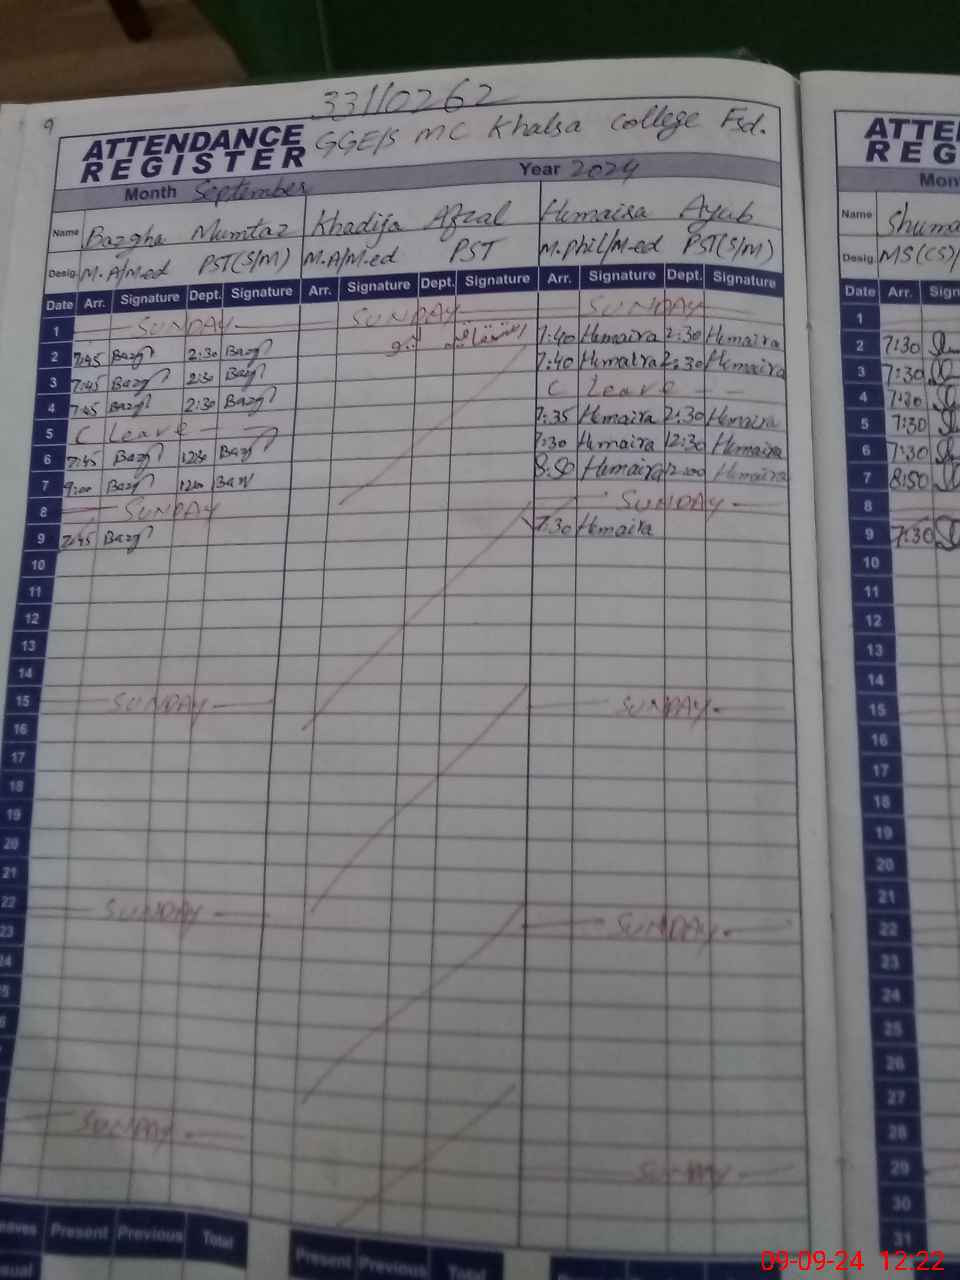 9
33110262
ATTENDANCE REGISTER GGE/S MC Khalsa College Fsd.
Month September Year 2024
Name Bazgha Mumtaz Khadija Afzal Humaira Ayub
Desig. M.A/M.ed PST(S/M) M.A/M.ed PST M.Phil/M.ed PST(S/M)
Date Arr. Signature Dept. Signature Arr. Signature Dept. Signature Arr. Signature Dept. Signature
1 SUNDAY SUNDAY SUNDAY
2 7:45 Bazgh 2:30 Bazgh 7:40 Humaira 2:30 Humaira
3 7:45 Bazgh 2:30 Bazgh 7:40 Humaira 2:30 Humaira
4 7:45 Bazgh 2:30 Bazgh C Leave
5 C Leave 7:35 Humaira 2:30 Humaira
6 7:45 Bazgh 12:30 Bazgh 7:30 Humaira 12:30 Humaira
7 9:00 Bazgh 12:00 8:50 Humaira 12:00 Humaira
8 SUNDAY SUNDAY
9 7:45 Bazgh 7:30 Humaira
10
11
12
13
14
15 SUNDAY SUNDAY
16
17
18
19
20
21
22 SUNDAY SUNDAY
23
24
SUNDAY SUNDAY
Present Previous Total
Present Previous Total
ATTE
REG
Mon
Name Shuma
Desig. MS(CS)/
Date Arr. Sign
1
2 7:30
3 7:30
4 7:30
5 7:30
6 7:30
7 8:50
8
9 7:30
10
11
12
13
14
15
16
17
18
19
20
21
22
23
24
25
26
27
28
29
30
31
09-09-24 12:22